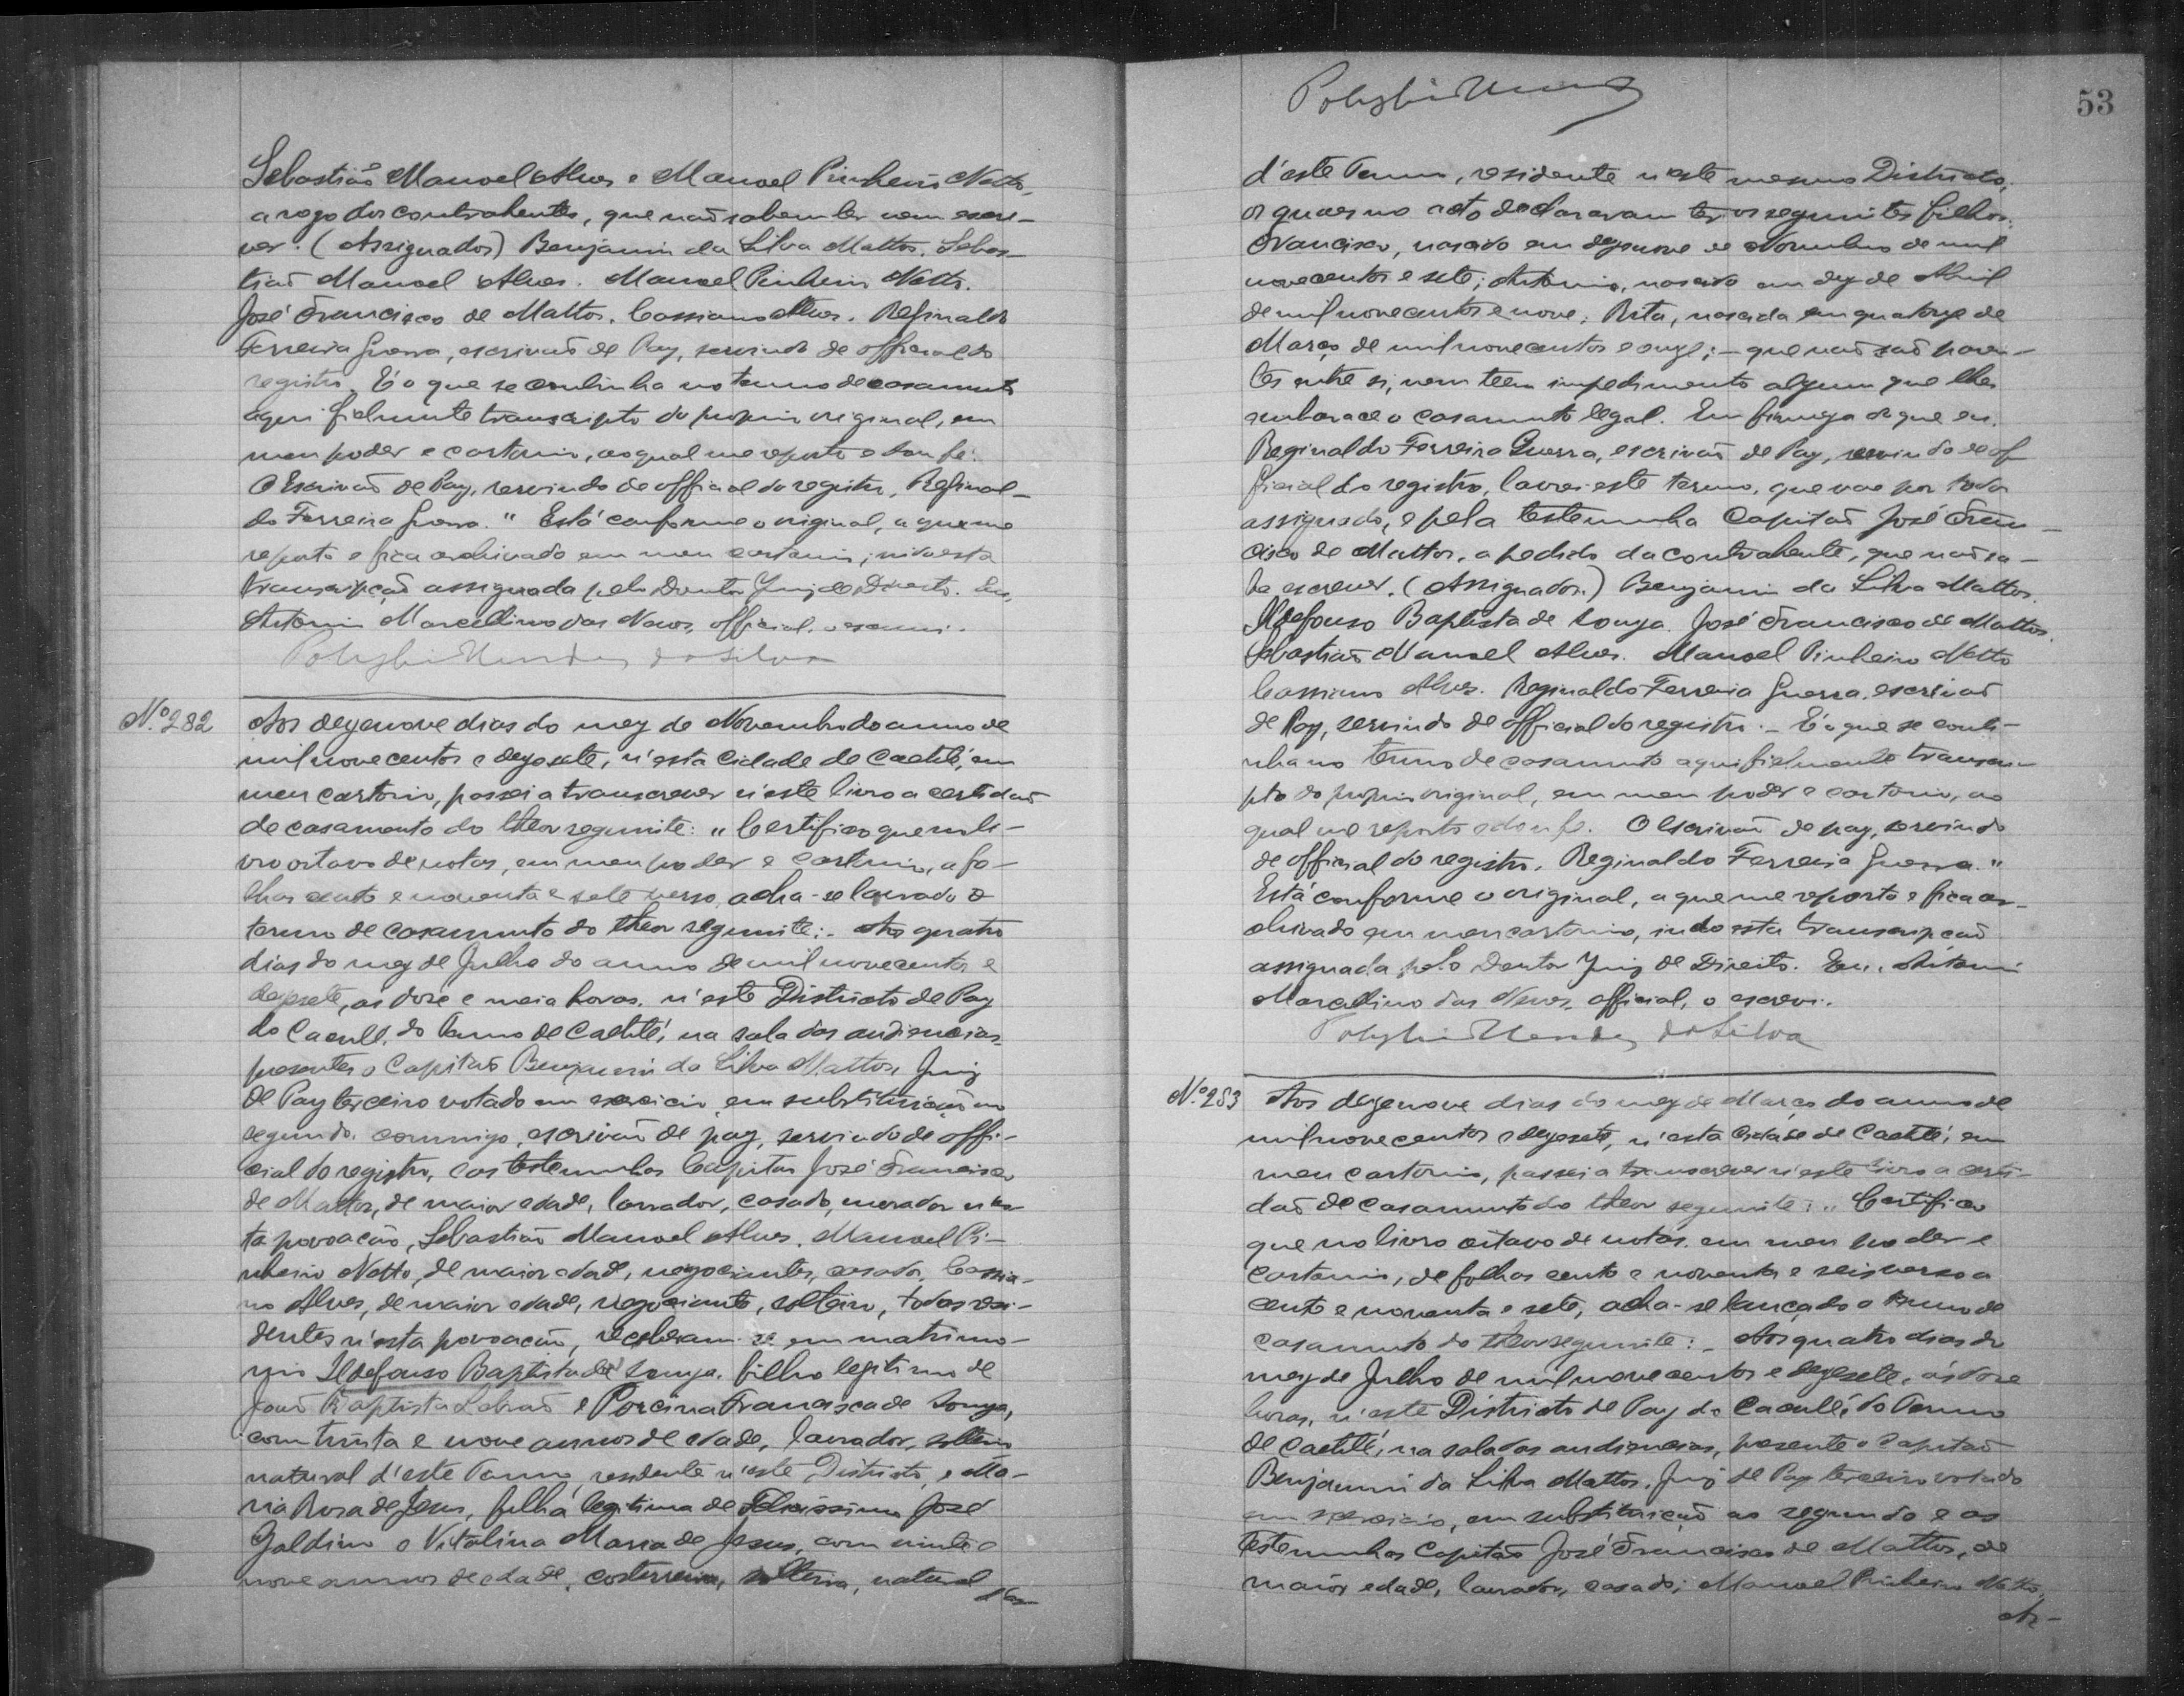 Sebastião Manoel Alves e Manoel Pinheiro Netto,
a rogo dos contrahentes, que não sabem ler nem escre-
ver. (Assignados) Benjamin da Silva Mattos. Sebas-
tião Manoel Alves. Manoel Pinheiro Netto.
José Francisco de Mattos. Cassiano Alves. Reginaldo
Ferreira Guerra, escrivão de Paz, servindo de official do
registro. É o que se continha no termo de casamento
aqui fielmente transcripto do proprio original, em
meu poder e cartorio, ao qual me reporto e dou fé.
O Escrivão de Paz, servindo de official do registro, Reginal-
do Ferreira Guerra." Está conforme o original, a que me
reporto e fica archivado em meu cartorio; indo esta
transcripção assignada pelo Doutor Juiz de Direito. Eu,
Antonio Marcellino das Neves, official, o escrevi.
Polybio Mendes da Silva
Nº 282
Aos dezenove dias do mez de Novembro do anno de
mil novecentos e dezesete, n'esta Cidade de Caetité, em
meu cartorio, passei a transcrever n'este livro a certidão
de casamento do theor seguinte: "Certifico que no li-
vro oitavo de notas, em meu poder e cartorio, a fo-
lhas cento e noventa e sete verso, acha-se lavrado o
termo de casamento do theor seguinte:- Aos quatro
dias do mez de Julho do anno de mil novecentos e
dezesete, as doze e meia horas, n'este Districto de Paz
do Caculé, do Termo de Caetité, na sala das audiencias,
presentes o Capitão Benjamin da Silva Mattos, Juiz
de Paz terceiro votado em exercicio, em substituição ao
segundo, commigo, escrivão de paz, servindo de offi-
cial do registro, e as testemunhas Capitão José Francisco
de Mattos, de maior edade, lavrador, casado, morador n'es-
ta povoação, Sebastião Manoel Alves, Manoel Pi-
nheiro Netto, de maior edade, negociantes, casados, Cassia-
no Alves, de maior edade, negociante, solteiro, todos resi-
dentes n'esta povoação, receberam-se em matrimo-
nio Ildefonso Baptista de Souza, filho legitimo de
João Baptista Lebrão e Porcina Francisca de Souza,
com trinta e nove annos de edade, lavrador, solteiro
natural d'este Termo, residente n'este Districto, e Ma-
ria Rosa de Jesus, filha legitima de Felicissimo José
Galdino e Vitalina Maria de Jesus, com vinte e
nove annos de edade, costureira, solteira, natural
Polybio Mendes
53
d'este Termo, residente n'este mesmo Districto,
os quaes no acto declararam ter os seguintes filhos:
Francisco, nascido em dezenove de Novembro de mil
novecentos e sete; Antonio, nascido em dez de Abril
de mil novecentos e nove; Rita, nascida em quatorze de
Março de mil novecentos e onze;- que não são paren-
tes entre si, nem teem impedimento algum que lhes
embarace o casamento legal. Em firmeza do que eu,
Reginaldo Ferreira Guerra, escrivão de Paz, servindo de of
ficial do registro, lavrei este termo, que vae por todos
assignado, e pela testemunha Capitão José Fran-
cisco de Mattos, a pedido da contrahente, que não sa-
be escrever. (Assignados.) Benjamin da Silva Mattos.
Ildefonso Baptista de Souza. José Francisco de Mattos.
Sebastião Manoel Alves. Manoel Pinheiro Netto
Cassiano Alves. Reginaldo Ferreira Guerra, escrivão
de Paz, servindo de official do registro.- É o que se conti-
nha no termo de casamento aqui fielmente transcri-
pto do proprio original, em meu poder e cartorio, ao
qual me reporto e dou fé. O Escrivão de paz, servindo
de official do registro, Reginaldo Ferreira Guerra."
Está conforme o original, a que me reporto e fica ar-
chivado em meu cartorio, indo esta transcripção
assignada pelo Doutor Juiz de Direito. Eu, Antonio
Marcellino das Neves, official, o escrevi.
Polybio Mendes da Silva
Nº 283
Aos dezenove dias do mez de Março do anno de
mil novecentos e dezesete, n'esta Cidade de Caetité, em
meu cartorio, passei a transcrever n'este livro a certi-
dão de casamento do theor seguinte: "Certifico
que no livro oitavo de notas, em meu poder e
cartorio, de folhas cento e noventa e seis verso a
cento e noventa e sete, acha-se lançado o termo de
casamento do theor seguinte:- Aos quatro dias do
mez de Julho de mil novecentos e dezesete, ás doze
horas, n'este Districto de Paz do Caculé, do Termo
de Caetité, na sala das audiencias, presente o Capitão
Benjamin da Silva Mattos, Juiz de Paz terceiro votado
em exercicio, em substituição ao segundo e as
testemunhas Capitão José Francisco de Mattos, de
maior edade, lavrador, casado; Manoel Pinheiro Netto,